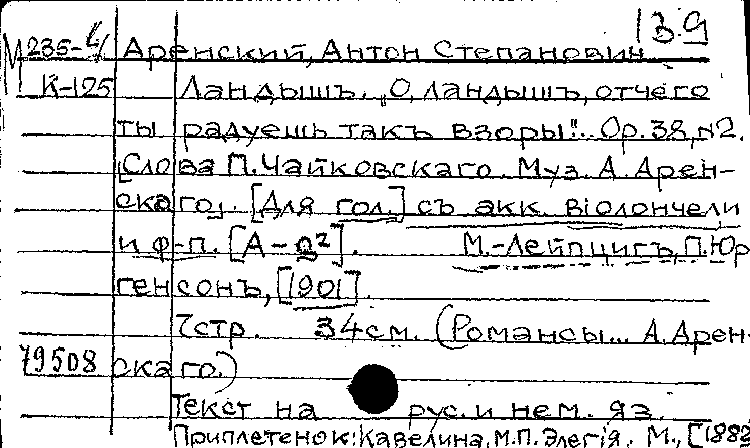 139
М 235-4 Аренский, Антон Степанович
К-125 Ландышъ. "О, ландышъ, отчего
ты радуешь такъ взоры!". Ор. 38, №2.
[Слова П. Чайковскаго. Муз. А. Арен-
скаго]. [Для гол.] съ акк. віолончели
и ф-п. [А-g²]. М.-Лейпцигъ, П. Юр
генсонъ, [1901].
7 стр. 34 см. (Романсы... А. Арен-
79508 скаго.)
Текст на рус. и нем. яз.
Приплетено к: Кавелина, М.П. Элегія. М., [1883